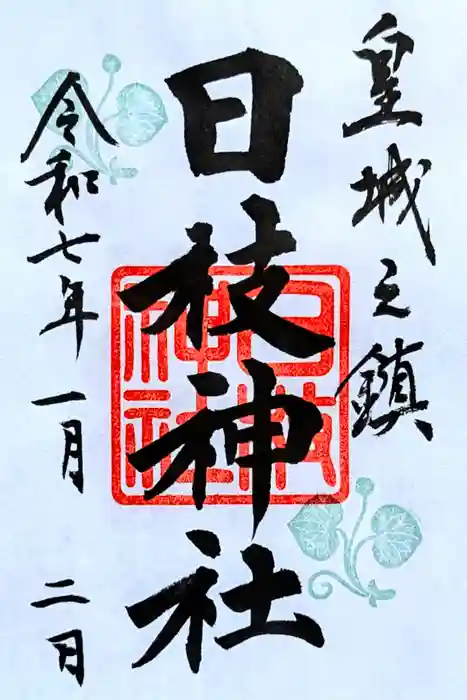 皇城之鎮
日枝神社
日枝神社
令和七年一月二日